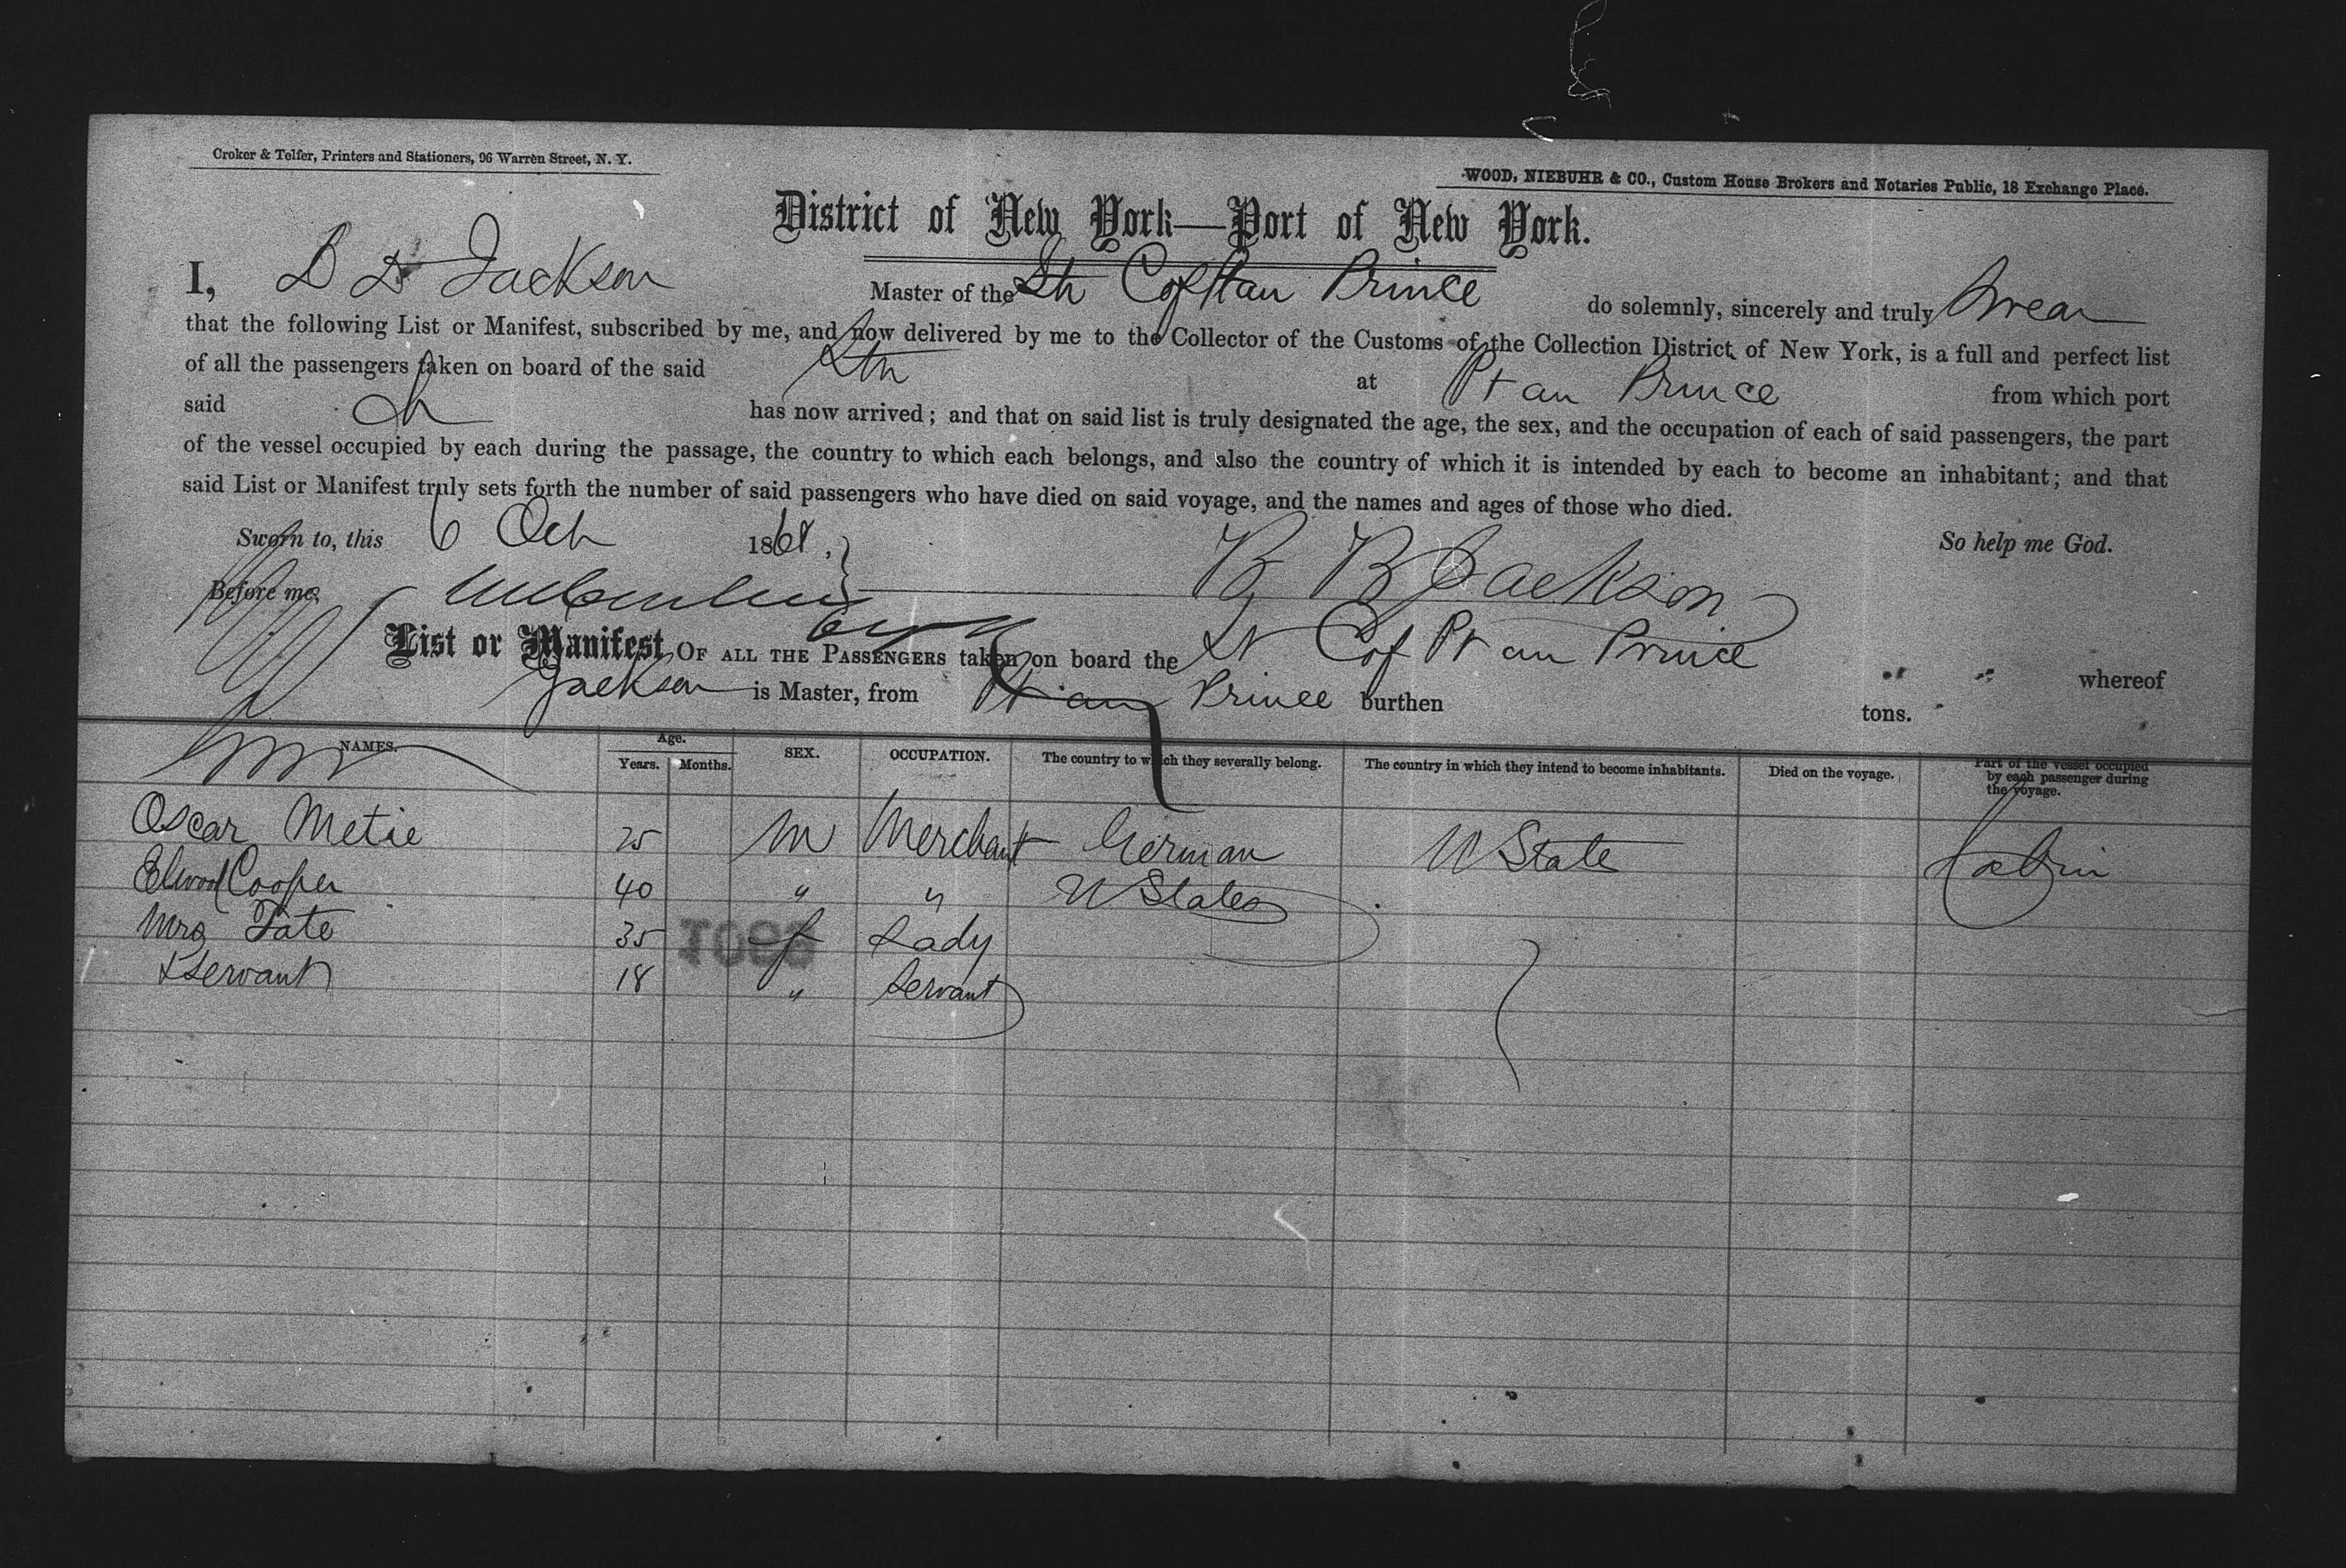 Croker & Telfer, Printers and Stationers, 96 Warren Street, N. Y.
WOOD, NIEBUHR & CO., Custom House Brokers and Notaries Public, 18 Exchange Place.
District of New York—Port of New York.
I, B B Jackson Master of the Str Cof Pt au Prince do solemnly, sincerely and truly Swear
that the following List or Manifest, subscribed by me, and now delivered by me to the Collector of the Customs of the Collection District of New York, is a full and perfect list
of all the passengers taken on board of the said Str at Pt au Prince from which port
said has now arrived; and that on said list is truly designated the age, the sex, and the occupation of each of said passengers, the part
of the vessel occupied by each during the passage, the country to which each belongs, and also the country of which it is intended by each to become an inhabitant; and that
said List or Manifest truly sets forth the number of said passengers who have died on said voyage, and the names and ages of those who died.
Sworn to, this 6 Oct 1868. So help me God.
Before me, B B Jackson
List or Manifest OF ALL THE PASSENGERS taken on board the St Cof Pt au Prince " " whereof
Jackson is Master, from Pt au Prince burthen tons.
NAMES. Age. Years. Months. SEX. OCCUPATION. The country to which they severally belong. The country in which they intend to become inhabitants. Died on the voyage. Part of the vessel occupied by each passenger during the voyage.
Oscar Metie 25 M Merchant German U State Cabin
Elwood Cooper 40 " " U States
Mrs Tate 35 f Lady
& Servant 18 " Servant